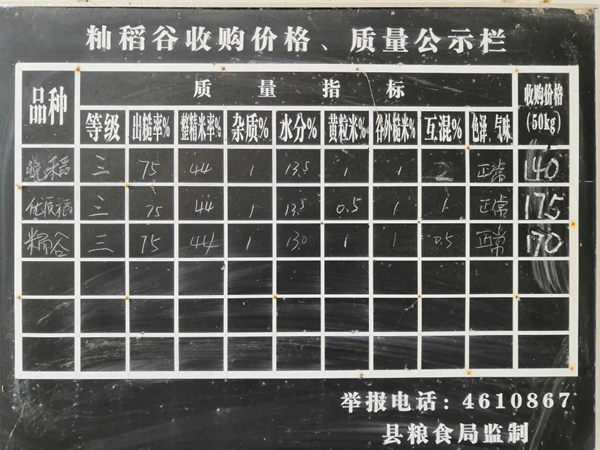 籼稻谷收购价格、质量公示栏
品种 质量指标 收购价格(50kg)
等级 出糙率% 整精米率% 杂质% 水分% 黄粒米% 谷外糙米% 互混% 色泽、气味
晚稻 三 75 44 1 13.5 1 1 2 正常 140
优质稻 三 75 44 1 13.5 0.5 1 1 正常 175
三 75 44 1 13.0 1 1 0.5 正常 170
举报电话: 4610867
县粮食局监制